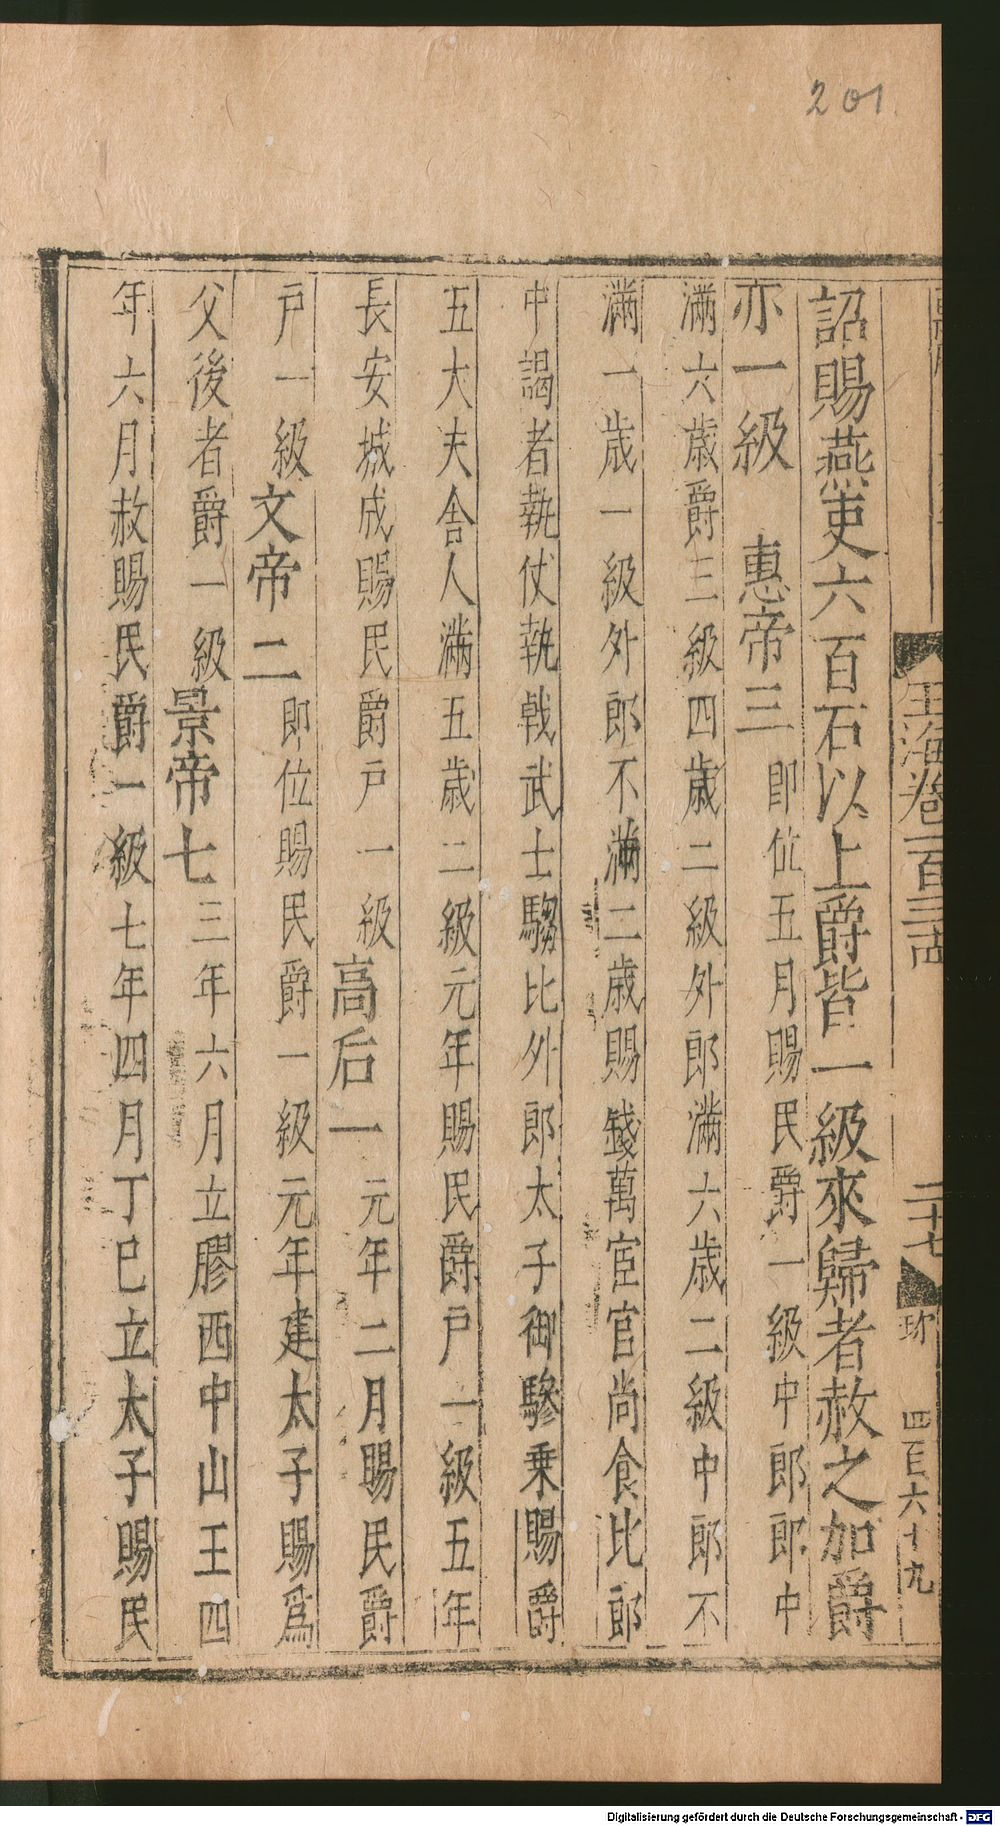 201
玉海卷一百三十四
二十七
四百六十九
詔賜燕吏六百石以上爵皆一級來歸者赦之加爵
亦一級 惠帝三即位五月賜民爵一級中郎郎中
滿六歲爵三級四歲二級外郎滿六歲二級中郎不
滿一歲一級外郎不滿二歲賜錢萬宦官尚食比郎
中謁者執仗執戟武士騶比外郎太子御驂乗賜爵
五大夫舎人滿五歲二級元年賜民爵戸一級五年
長安城成賜民爵戸一級高后一元年二月賜民爵
戸一級文帝二即位賜民爵一級元年建太子賜爲
父後者爵一級景帝七三年六月立膠西中山王四
年六月赦賜民爵一級七年四月丁巳立太子賜民
Digitalisierung gefördert durch die Deutsche Forschungsgemeinschaft - DFG